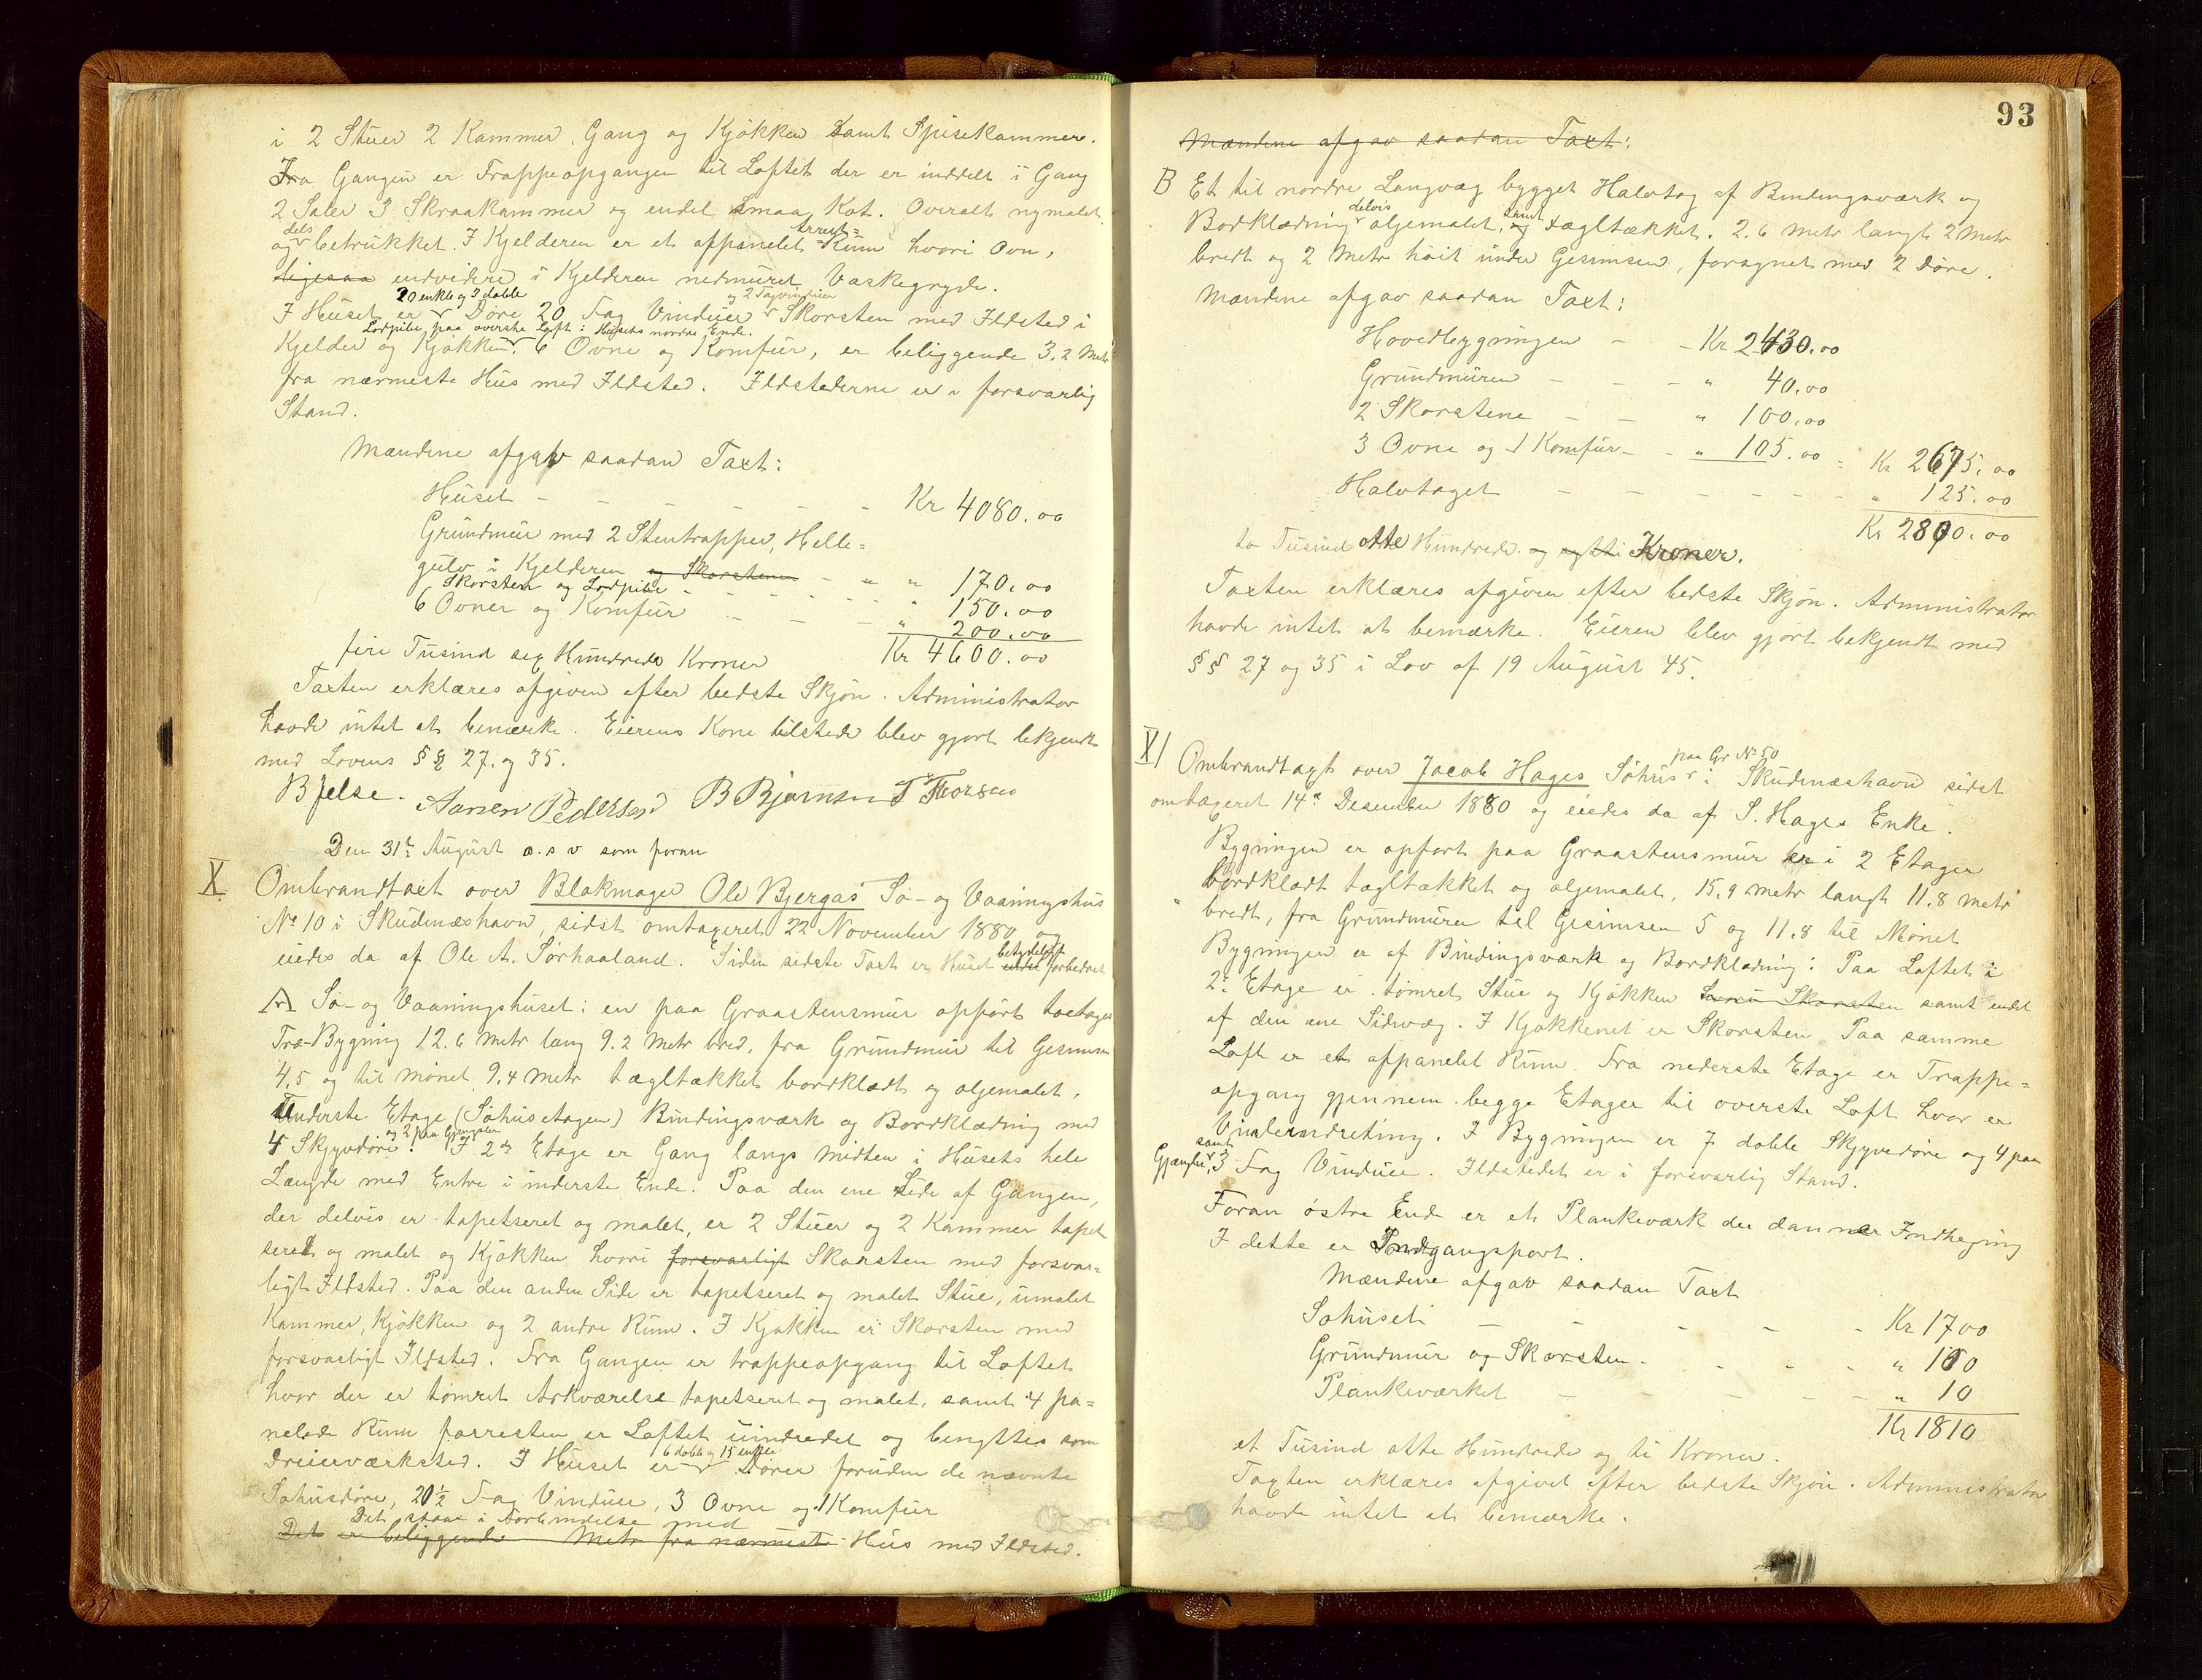 i 2 Stuer 2 Kammer, Gang og Kjøkken samt Spisekammer.
Fra Gangen er Trappeopgangen til Loftet der er inddelt i Gang
2 Saler 3 Skraakammer og endel smaa Kot. Overalt nymalet
og dels betrukket. I Kjelderen er et afpanelet Rum hvori Ovn,
ligesaa endvidere i Kjelderen nedmuret Vaskegryde.
20 enkle og 3 doble
og 2 Tagvinduer
I Huset er Døre 20 Fag Vinduer Skorsten med Ildsted i
Lodpibe paa øverste Loft i Husets nordre Ende.
Kjelder og Kjøkken. 6 Ovne og Komfur, er beliggende 3.2 Metr
fra nærmeste Hus med Ildsted. Ildstederne er i forsvarlig
Stand.
Mændene afgav saadan Taxt:
Huset - - - - - Kr 4080.00
Grundmur med 2 Stentrapper, Helle=
gulv i Kjelderen og Skorstenen - " " 170.00
Skorsten og Lodpibe - - - - - " 150.00
6 Ovner og Komfur - - - " 200.00
fire Tusind sex Hundrede Kroner Kr 4600.00
Taxten erklæres afgiven efter bedste Skjøn. Administrator
havde intet at bemærke. Eierens Kone tilstede blev gjort bekjendt
med Lovens §§ 27. og 35.
B Jelse. Aanen Pedersen B Bjørnsen T Thorsen
Den 31te August o.s v som foran
X Ombrandtaxt over Blokmager Ole Bjergas Sø- og Vaaningshus
No 10 i Skudesnæshavn, sidst omtaxeret 22 November 1880 og
eiedes da af Ole A. Sørhaaland. Siden sidste Taxt er Huset endel betydeligt forbedret
A Sø- og Vaaningshuset: en paa Graastensmur opført toetages
Træ-Bygning 12.6 Metr lang 9.2 Metr bred, fra Grundmur til Gesimsen
4.5 og til Mønet 9.4 Metr tægltækket bordklædt og oljemalet.
Underste Etage (Søhusetagen) Bindingsværk og Bordklædning med
4 Skyvdøre og 2 paa Gjængsler. I 2den Etage er Gang langs Midten i Husets hele
Længde med Entre i inderste Ende. Paa den ene Side af Gangen,
der delvis er tapetseret og malet, er 2 Stuer og 2 Kammer tapet
seret og malet og Kjøkken hvori forsvarligt Skorsten med forsvar=
ligt Ildsted. Paa den anden Side er tapetseret og malet Stue, umalet
Kammer, Kjøkken og 2 andre Rum. I Kjøkken er Skorsten med
forsvarligt Ildsted. Fra Gangen er trappeopgang til Loftet
hvor der er tømret Arkværelse tapetseret og malet, samt 4 pa=
nelede Rum forresten er Loftet uindredet og benyttes som
Dreierværksted. I Huset er 6 doble og 15 enkle Dører foruden de nævnte
Søhusdøre, 20½ Fag Vinduer, 3 Ovne og 1 Komfur
Det staar i Forbindelse med
Det er beliggende Metr fra nærmeste Hus med Ildsted.
93
Mændene afgav saadan Taxt:
B Et til nordre Langvæg bygget Halvtag af Bindingsværk og
Bordklædning delvis oljemalet, og samt tægltækket. 2.6 Metr langt 2 Metr
bredt og 2 Metr høit under Gesimsen, forsynet med 2 Døre.
Mændene afgav saadan Taxt:
Hovedbygningen - - Kr 2430.00
Grundmuren - - - " 40.00
2 Skorstene - - " 100.00
3 Ovne og 1 Komfur - - " 105.00 = Kr 2675.00
Halvtaget - - - - - - - " 125.00
Kr 2800.00
to Tusind otte Hundrede og Kroner.
Taxten erklæres afgiven efter bedste Skjøn. Administrator
havde intet at bemærke. Eieren blev gjort bekjendt med
§§ 27 og 35 i Lov af 19 August 45.
XI Ombrandtaxt over Jacob Hages Søhus paa Gr No 50 i Skudesnæshavn sidst
omtaxeret 14de Desember 1880 og eiedes da af S. Hages Enke.
Bygningen er opført paa Graastensmur i 2 Etager
bordklædt tægltækket og oljemalet, 15.9 Metr langt 11.8 Metr
bredt, fra Grundmuren til Gesimsen 5 og 11.8 til Mønet
Bygningen er af Bindingsværk og Bordklædning: Paa Loftet i
2. Etage er tømret Stue og Kjøkken Skorsten samt endel
af den ene Sidevæg. I Kjøkkenet er Skorsten Paa samme
Loft er et afpanelet Rum. Fra nederste Etage er Trappe=
opgang gjennem begge Etager til øverste Loft hvor er
Vinderindretning. I Bygningen er 7 doble Skyvedøre og 4 paa
Gjængsler, samt 3 Fag Vinduer. Ildstedet er i forsvarlig Stand.
Foran østre Ende er et Plankeværk der danner Indhegning
I dette er Indgangsport.
Mændene afgav saadan Taxt
Søhuset - - - - - Kr 1700
Grundmur og Skorsten - - - - " 100
Plankeværket - - - - - " 10
Kr 1810
et Tusind otte Hundrede og ti Kroner.
Taxten erklæres afgivet efter bedste Skjøn. Administrator
havde intet at bemærke.